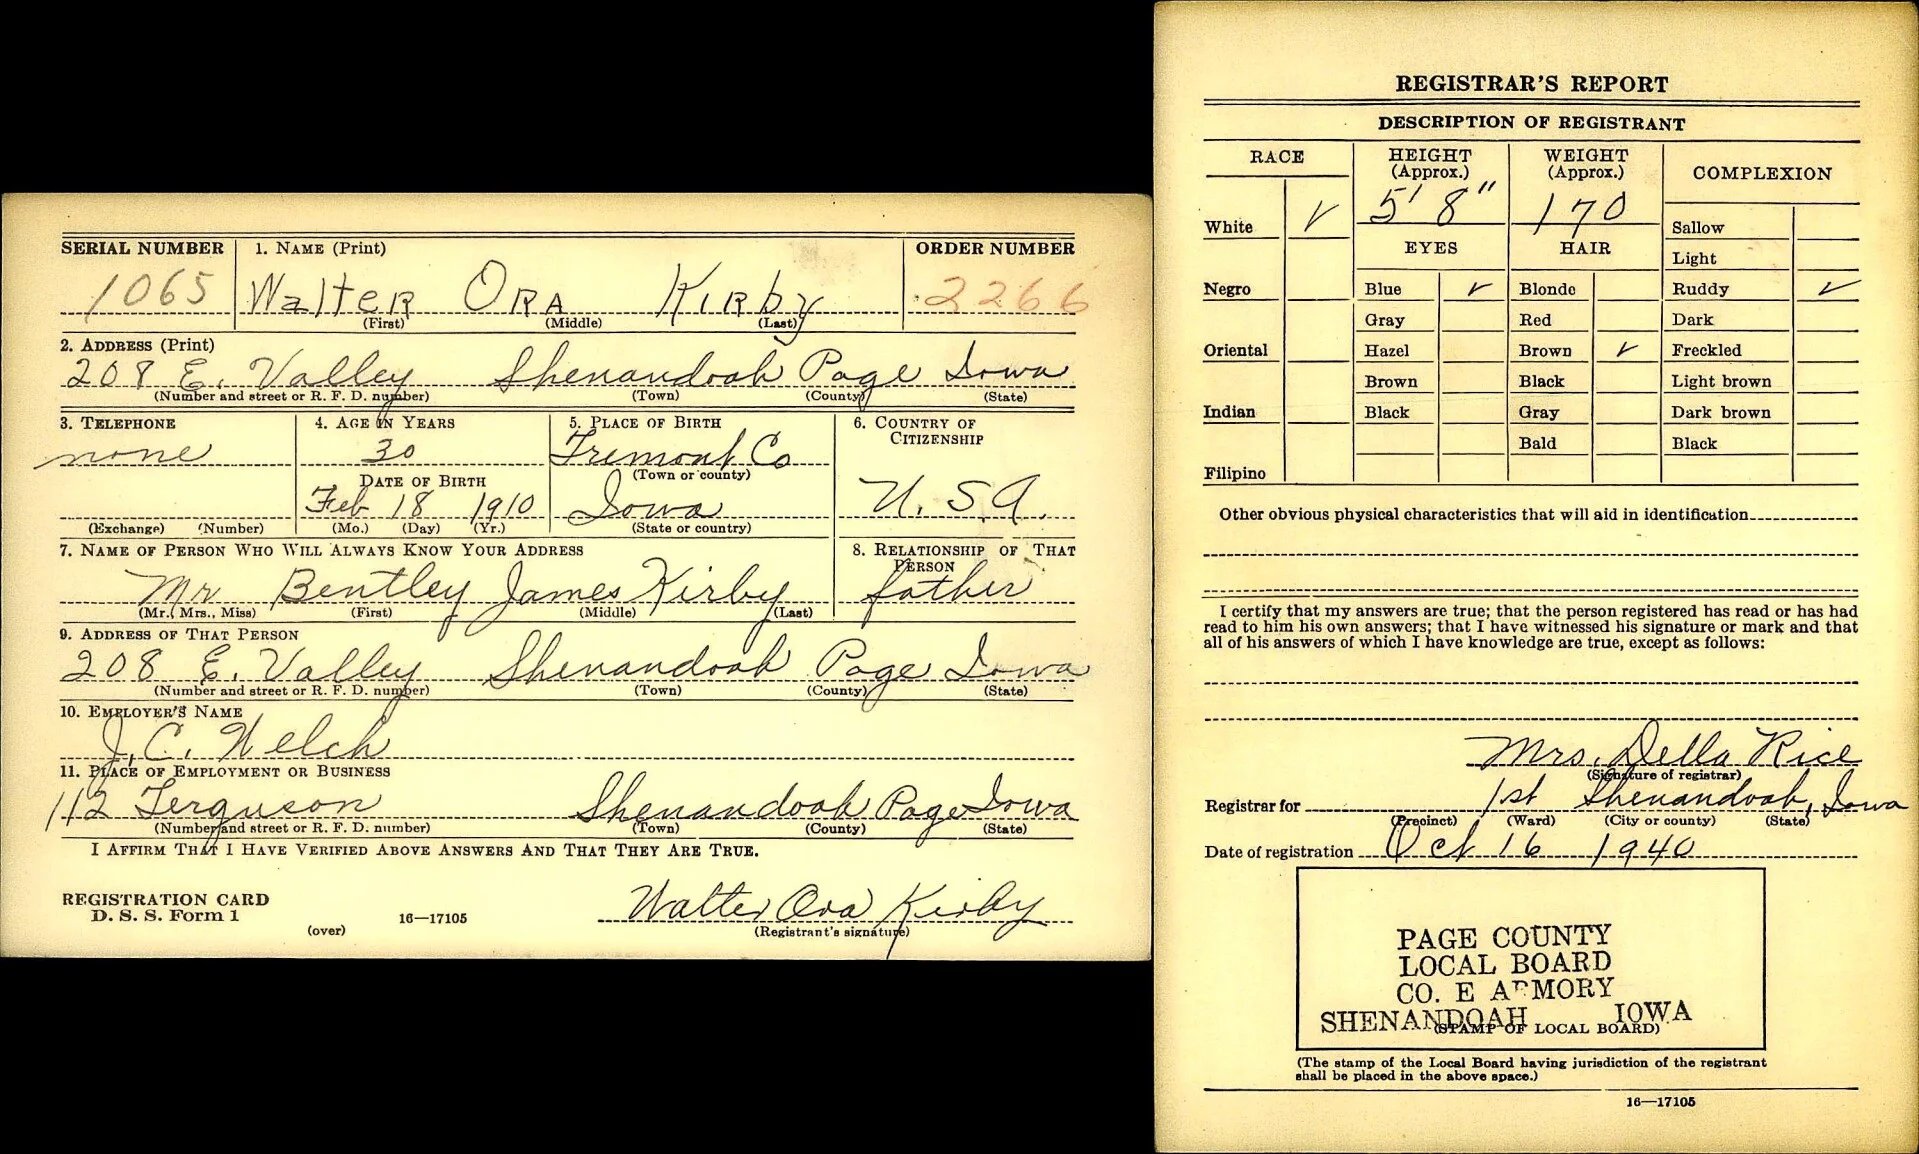 SERIAL NUMBER 1. NAME (Print) ORDER NUMBER
1065 Walter Ora Kirby 2266
(First) (Middle) (Last)
2. ADDRESS (Print)
208 E. Valley Shenandoah Page Iowa
(Number and street or R. F. D. number) (Town) (County) (State)
3. TELEPHONE 4. AGE IN YEARS 5. PLACE OF BIRTH 6. COUNTRY OF CITIZENSHIP
none 30 Fremont Co
(Town or county)
DATE OF BIRTH
Feb 18 1910 Iowa U.S.A.
(Exchange) (Number) (Mo.) (Day) (Yr.) (State or country)
7. NAME OF PERSON WHO WILL ALWAYS KNOW YOUR ADDRESS 8. RELATIONSHIP OF THAT PERSON
Mr Bentley James Kirby father
(Mr., Mrs., Miss) (First) (Middle) (Last)
9. ADDRESS OF THAT PERSON
208 E. Valley Shenandoah Page Iowa
(Number and street or R. F. D. number) (Town) (County) (State)
10. EMPLOYER'S NAME
J. C. Welch
11. PLACE OF EMPLOYMENT OR BUSINESS
112 Ferguson Shenandoah Page Iowa
(Number and street or R. F. D. number) (Town) (County) (State)
I AFFIRM THAT I HAVE VERIFIED ABOVE ANSWERS AND THAT THEY ARE TRUE.
REGISTRATION CARD
D. S. S. Form 1 16—17105 Walter Ora Kirby
(over) (Registrant's signature)
REGISTRAR'S REPORT
DESCRIPTION OF REGISTRANT
RACE HEIGHT (Approx.) WEIGHT (Approx.) COMPLEXION
White ✓ 5' 8" 170 Sallow
EYES HAIR Light
Negro Blue ✓ Blonde Ruddy ✓
Gray Red Dark
Oriental Hazel Brown ✓ Freckled
Brown Black Light brown
Indian Black Gray Dark brown
Bald Black
Filipino
Other obvious physical characteristics that will aid in identification
I certify that my answers are true; that the person registered has read or has had
read to him his own answers; that I have witnessed his signature or mark and that
all of his answers of which I have knowledge are true, except as follows:
Mrs. Della Rice
(Signature of registrar)
Registrar for 1st Shenandoah, Iowa
(Precinct) (Ward) (City or county) (State)
Date of registration Oct 16 1940
PAGE COUNTY
LOCAL BOARD
CO. E ARMORY
SHENANDOAH IOWA
(STAMP OF LOCAL BOARD)
(The stamp of the Local Board having jurisdiction of the registrant
shall be placed in the above space.)
16—17105